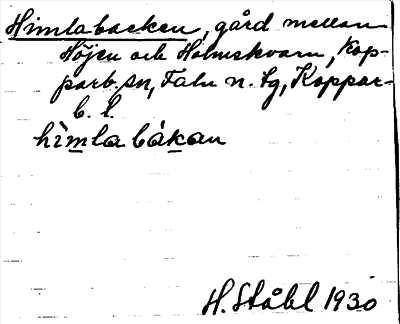 Himlabacken, gård mellan
Höjen och Holmskvarn, Kop-
parb. sn, Falu n. tg, Koppar-
b. l.
hìmla bákan
H. Ståhl 1930